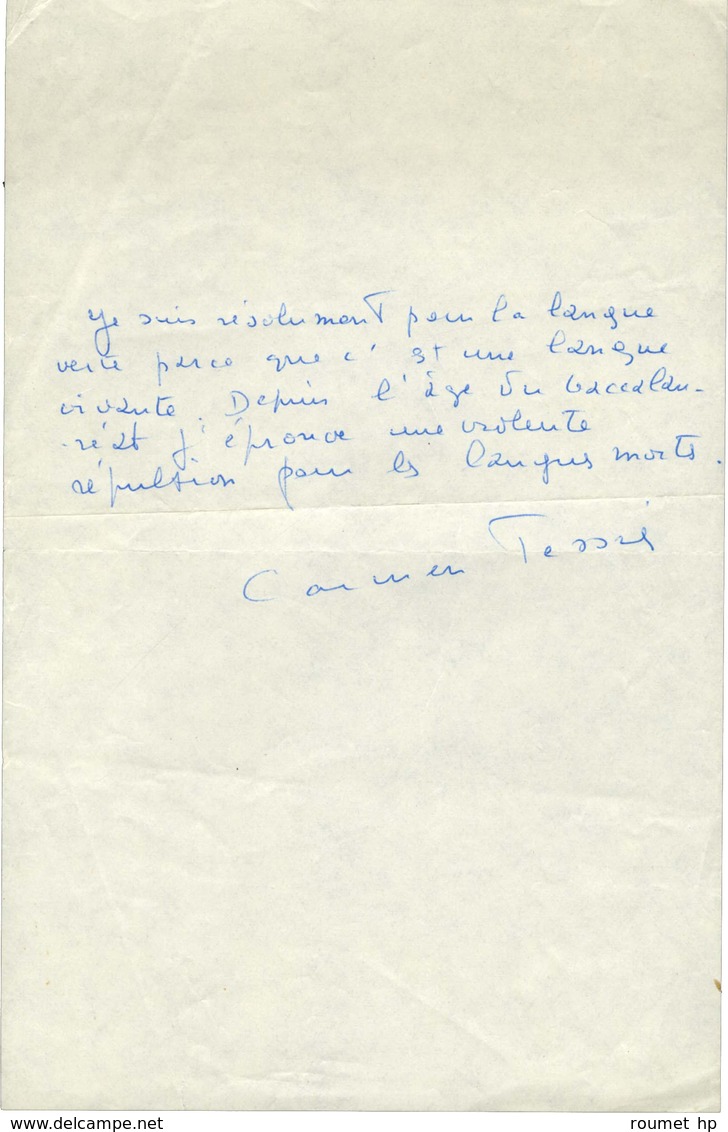 Je suis résolument pour la langue
verte parce que c'est une langue
vivante. Depuis l'âge du baccalau-
-réat j'éprouve une violente
répulsion pour les langues mortes.
Carmen Tessier
www.delcampe.net
roumet hp